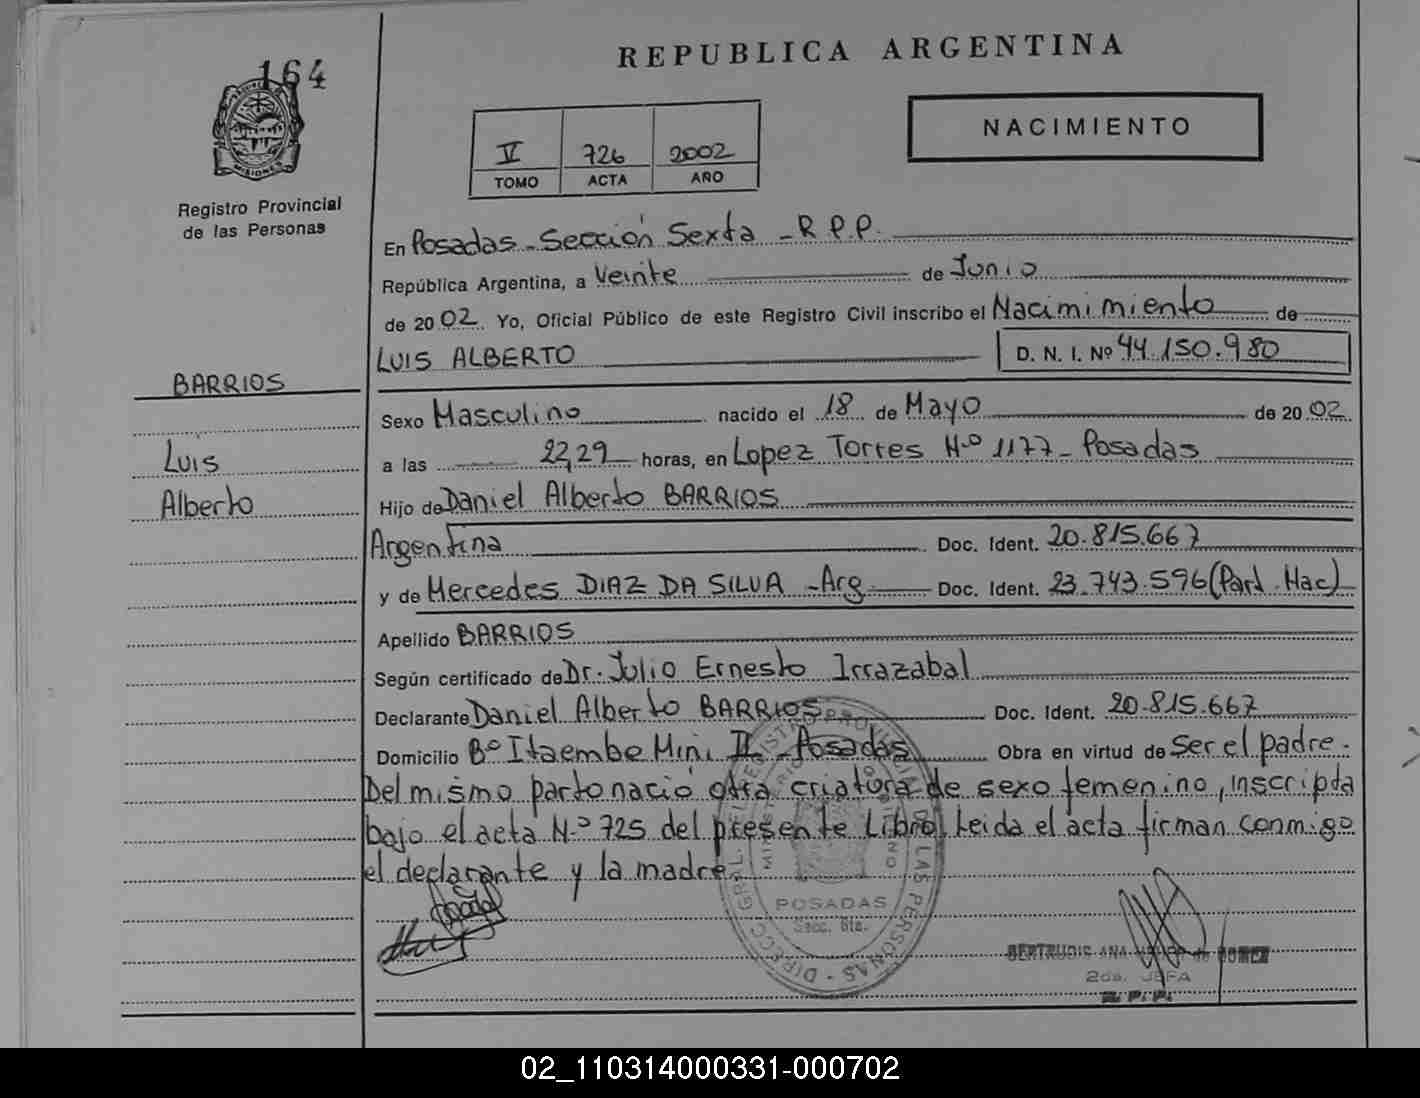 164
MISIONES
Registro Provincial
de las Personas
REPUBLICA ARGENTINA
NACIMIENTO
V 726 2002
TOMO ACTA AÑO
En Posadas - Sección Sexta - R P.P.
República Argentina, a Veinte de Junio
de 2002. Yo, Oficial Público de este Registro Civil inscribo el Nacimimiento de
LUIS ALBERTO D. N. I. Nº 44.150.980
BARRIOS
Luis
Alberto
Sexo Masculino nacido el 18 de Mayo de 2002
a las 22,29 horas, en Lopez Torres N-º 1177 - Posadas
Hijo de Daniel Alberto BARRIOS
Argentina Doc. Ident. 20.815.667
y de Mercedes DIAZ DA SILVA - Arg. Doc. Ident. 23.743.596 (Part. Nac)
Apellido BARRIOS
Según certificado de Dr. Julio Ernesto Irrazabal
Declarante Daniel Alberto BARRIOS Doc. Ident. 20.815.667
Domicilio Bº Itaembe Mini II - Posadas Obra en virtud de ser el padre.
Del mismo parto nació otra criatura de sexo femenino, inscripta
bajo el acta N-º 725 del presente Libro. Leida el acta firman conmigo
el declarante y la madre
DIRECC. GRAL. DEL REGISTRO PROVINCIAL DE LAS PERSONAS
POSADAS
Secc. 6ta.
GERTRUDIS ANA de GOMEZ
2da. JEFA
R. P. P.
02_110314000331-000702